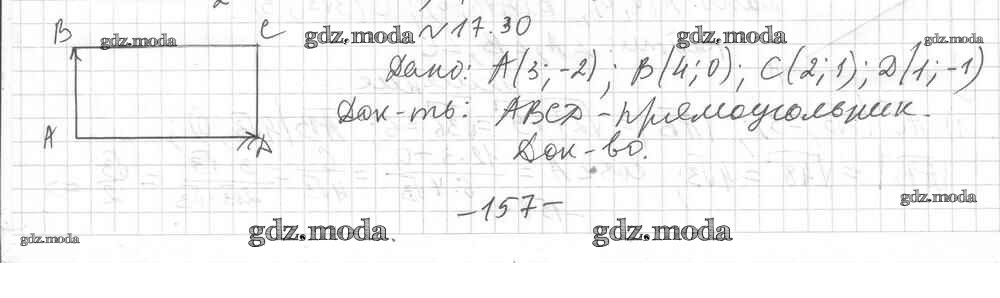 B C
gdz.moda gdz.moda №17.30 gdz.moda gdz.moda
Дано: A(3;-2); B(4;0); C(2;1); D(1;-1)
A Док-ть: ABCD - прямоугольник.
D Док-во.
-157-
gdz.moda
gdz.moda gdz.moda gdz.moda